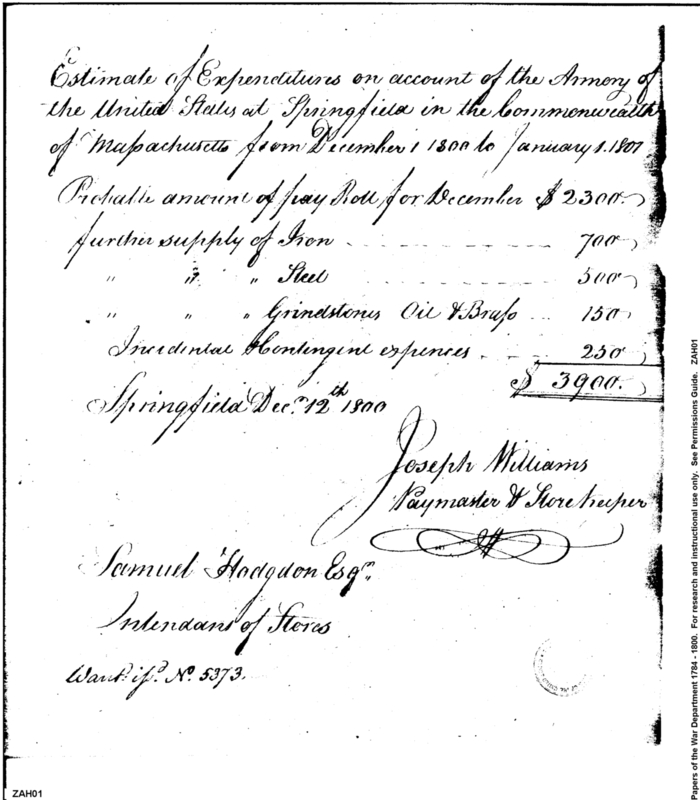 Estimate of Expenditures on account of the Armory of
the United States at Springfield in the Commonwealth
of Massachusetts from December 1 1800 to January 1. 1801
Probable amount of pay Roll for December $ 2300.
further supply of Iron 700
" " " Steel 500
" " " Grindstones Oil & Brass 150
Incidental & Contingent expences 250
$ 3900.
Springfield Decr. 12th 1800
Joseph Williams
Paymaster & Storekeeper
Samuel Hodgdon Esqr.
Intendant of Stores
Warrt. issd. No. 5373.
ZAH01
Papers of the War Department 1784 - 1800. For research and instructional use only. See Permissions Guide. ZAH01